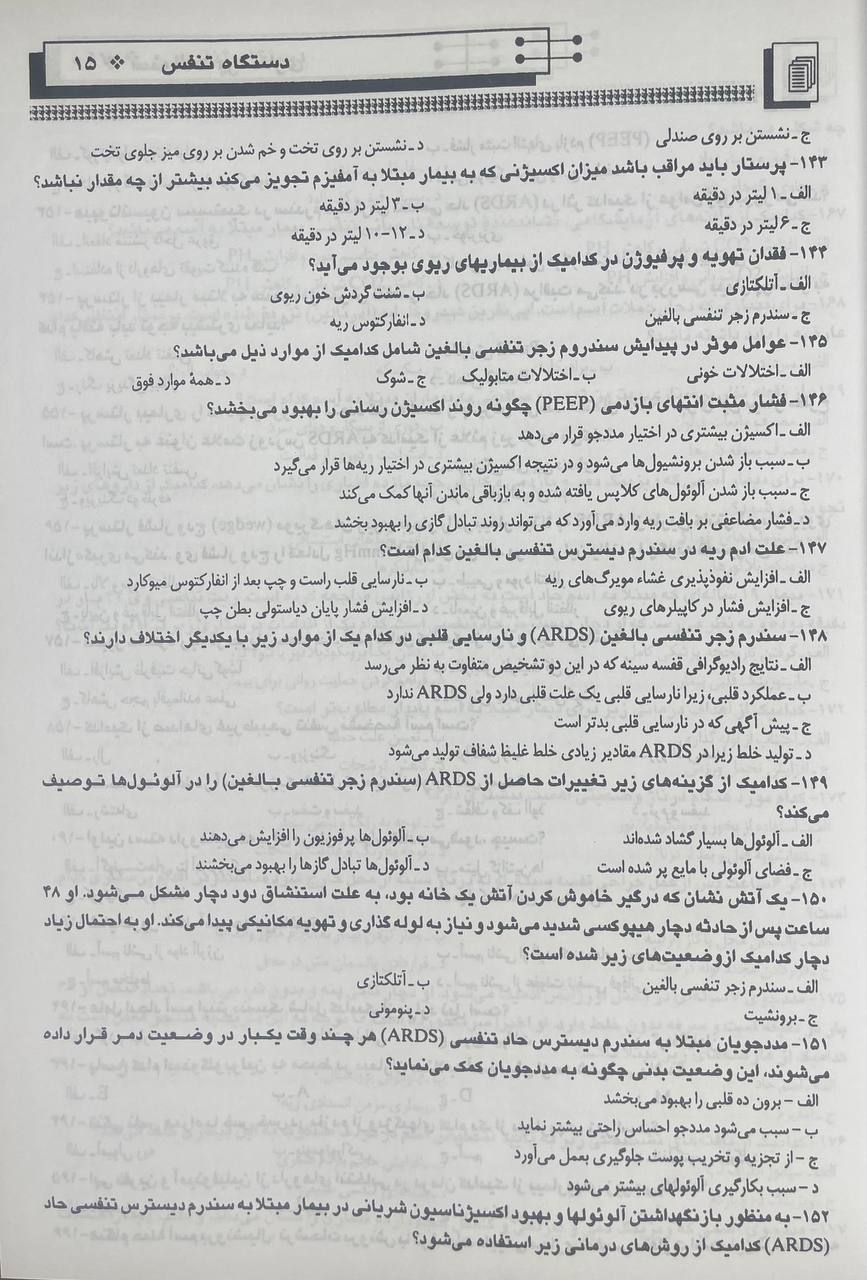 دستگاه تنفس ❖ ۱۵
ج ـ نشستن بر روی صندلی د ـ نشستن بر روی تخت و خم شدن بر روی میز جلوی تخت
۱۴۳- پرستار باید مراقب باشد میزان اکسیژنی که به بیمار مبتلا به آمفیزم تجویز می‌کند بیشتر از چه مقدار نباشد؟
الف ـ ۱ لیتر در دقیقه ب ـ ۳ لیتر در دقیقه
ج ـ ۶ لیتر در دقیقه د ـ ۱۲-۱۰ لیتر در دقیقه
۱۴۴- فقدان تهویه و پرفیوژن در کدامیک از بیماریهای ریوی بوجود می‌آید؟
الف ـ آتلکتازی ب ـ شنت گردش خون ریوی
ج ـ سندرم زجر تنفسی بالغین د ـ انفارکتوس ریه
۱۴۵- عوامل موثر در پیدایش سندروم زجر تنفسی بالغین شامل کدامیک از موارد ذیل می‌باشد؟
الف ـ اختلالات خونی ب ـ اختلالات متابولیک ج ـ شوک د ـ همهٔ موارد فوق
۱۴۶- فشار مثبت انتهای بازدمی (PEEP) چگونه روند اکسیژن رسانی را بهبود می‌بخشد؟
الف ـ اکسیژن بیشتری در اختیار مددجو قرار می‌دهد
ب ـ سبب باز شدن برونشیول‌ها می‌شود و در نتیجه اکسیژن بیشتری در اختیار ریه‌ها قرار می‌گیرد
ج ـ سبب باز شدن آلوئول‌های کلاپس یافته شده و به بازباقی ماندن آنها کمک می‌کند
د ـ فشار مضاعفی بر بافت ریه وارد می‌آورد که می‌تواند روند تبادل گازی را بهبود بخشد
۱۴۷- علت ادم ریه در سندرم دیسترس تنفسی بالغین کدام است؟
الف ـ افزایش نفوذپذیری غشاء مویرگ‌های ریه ب ـ نارسایی قلب راست و چپ بعد از انفارکتوس میوکارد
ج ـ افزایش فشار در کاپیلرهای ریوی د ـ افزایش فشار پایان دیاستولی بطن چپ
۱۴۸- سندرم زجر تنفسی بالغین (ARDS) و نارسایی قلبی در کدام یک از موارد زیر با یکدیگر اختلاف دارند؟
الف ـ نتایج رادیوگرافی قفسه سینه که در این دو تشخیص متفاوت به نظر می‌رسد
ب ـ عملکرد قلبی، زیرا نارسایی قلبی یک علت قلبی دارد ولی ARDS ندارد
ج ـ پیش آگهی که در نارسایی قلبی بدتر است
د ـ تولید خلط زیرا در ARDS مقادیر زیادی خلط غلیظ شفاف تولید می‌شود
۱۴۹- کدامیک از گزینه‌های زیر تغییرات حاصل از ARDS (سندرم زجر تنفسی بالغین) را در آلوئول‌ها توصیف
می‌کند؟
الف ـ آلوئول‌ها بسیار گشاد شده‌اند ب ـ آلوئول‌ها پرفوزیون را افزایش می‌دهند
ج ـ فضای آلوئولی با مایع پر شده است د ـ آلوئول‌ها تبادل گازها را بهبود می‌بخشند
۱۵۰- یک آتش نشان که درگیر خاموش کردن آتش یک خانه بود، به علت استنشاق دود دچار مشکل می‌شود. او ۴۸
ساعت پس از حادثه دچار هیپوکسی شدید می‌شود و نیاز به لوله گذاری و تهویه مکانیکی پیدا می‌کند. او به احتمال زیاد
دچار کدامیک از وضعیت‌های زیر شده است؟
الف ـ سندرم زجر تنفسی بالغین ب ـ آتلکتازی
ج ـ برونشیت د ـ پنومونی
۱۵۱- مددجویان مبتلا به سندرم دیسترس حاد تنفسی (ARDS) هر چند وقت یکبار در وضعیت دمر قرار داده
می‌شوند، این وضعیت بدنی چگونه به مددجویان کمک می‌نماید؟
الف - برون ده قلبی را بهبود می‌بخشد
ب - سبب می‌شود مددجو احساس راحتی بیشتر نماید
ج - از تجزیه و تخریب پوست جلوگیری بعمل می‌آورد
د - سبب بکارگیری آلوئولهای بیشتر می‌شود
۱۵۲- به منظور باز نگهداشتن آلوئولها و بهبود اکسیژناسیون شریانی در بیمار مبتلا به سندرم دیسترس تنفسی حاد
(ARDS) کدامیک از روش‌های درمانی زیر استفاده می‌شود؟